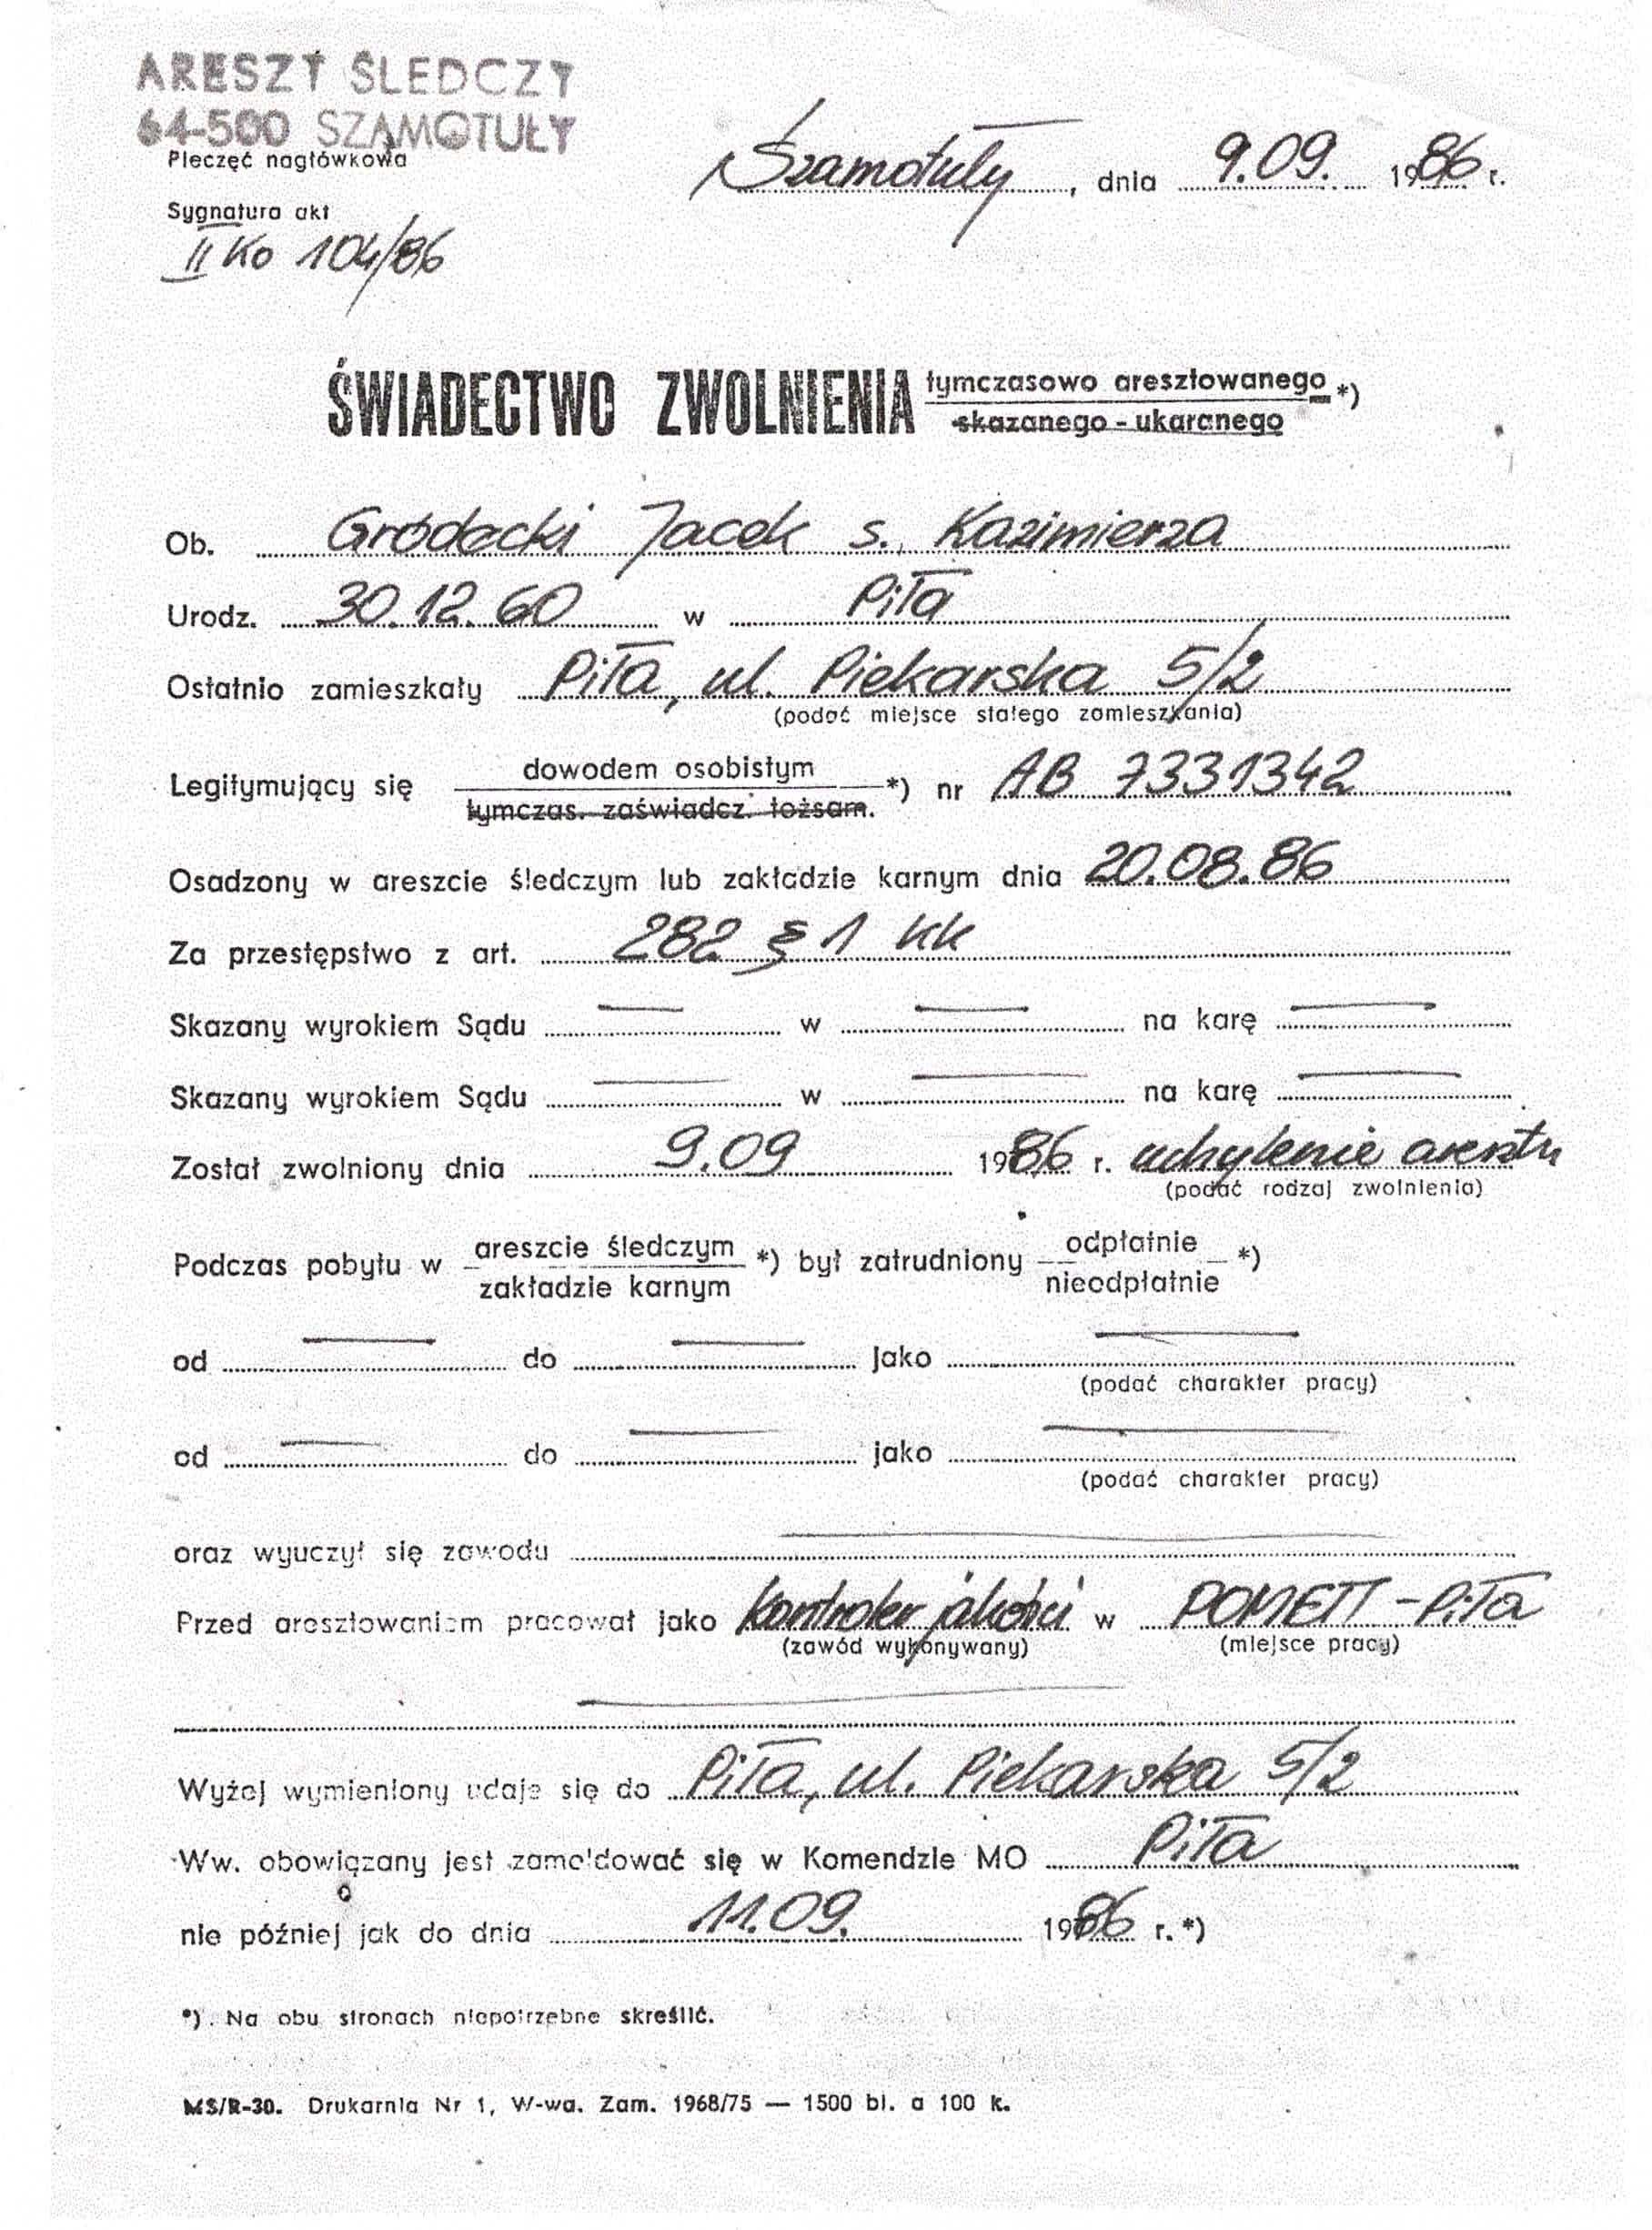 ARESZT ŚLEDCZY
64-500 SZAMOTUŁY
Pieczęć nagłówkowa
Szamotuły, dnia 9.09. 1986 r.
Sygnatura akt
II Ko 104/86
ŚWIADECTWO ZWOLNIENIA tymczasowo aresztowanego *)
skazanego - ukaranego
Ob. Gródecki Jacek s. Kazimierza
Urodz. 30.12.60 w Piła
Ostatnio zamieszkały Piła, ul. Piekarska 5/2
(podać miejsce stałego zamieszkania)
Legitymujący się dowodem osobistym *) nr AB 7331342
tymczas. zaświadcz. tożsam.
Osadzony w areszcie śledczym lub zakładzie karnym dnia 20.08.86
Za przestępstwo z art. 282 § 1 kk
Skazany wyrokiem Sądu — w — na karę —
Skazany wyrokiem Sądu — w — na karę —
Został zwolniony dnia 9.09 1986 r. uchylenie aresztu
(podać rodzaj zwolnienia)
Podczas pobytu w areszcie śledczym *) był zatrudniony odpłatnie *)
zakładzie karnym nieodpłatnie
od — do — jako —
(podać charakter pracy)
od — do — jako —
(podać charakter pracy)
oraz wyuczył się zawodu —
Przed aresztowaniem pracował jako kontroler jakości w POMETT - Piła
(zawód wykonywany) (miejsce pracy)
Wyżej wymieniony udaje się do Piła, ul. Piekarska 5/2
Ww. obowiązany jest zameldować się w Komendzie MO Piła
nie później jak do dnia 11.09. 1986 r. *)
*). Na obu stronach niepotrzebne skreślić.
MS/R-30. Drukarnia Nr 1, W-wa. Zam. 1968/75 — 1500 bl. a 100 k.